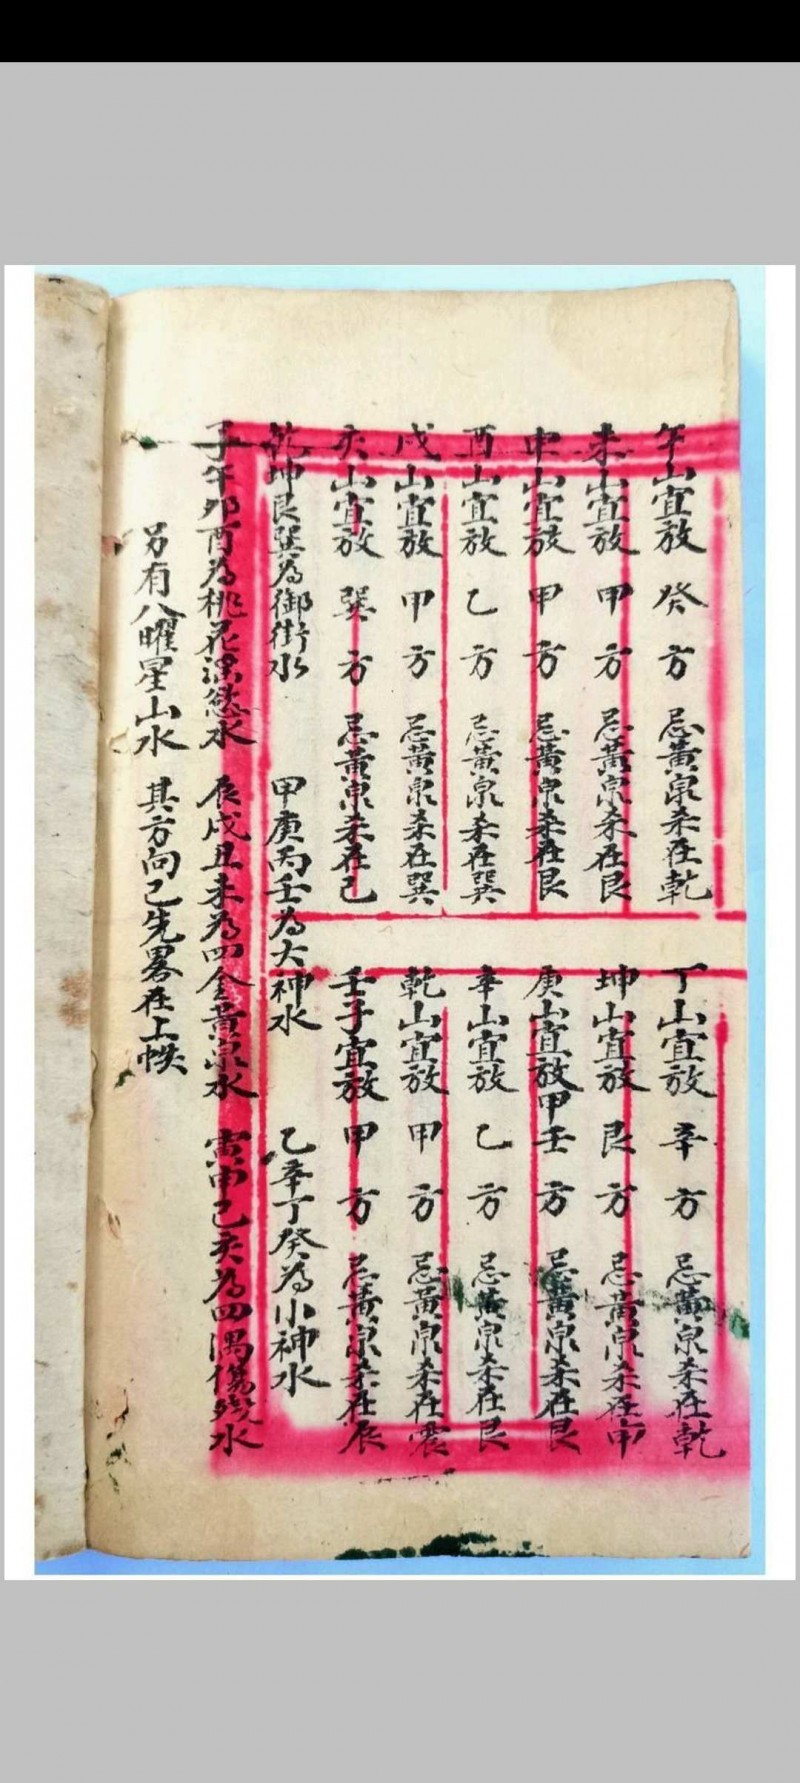 午山宜放 癸方 忌黃泉杀在乾
丁山宜放 辛方 忌黃泉杀在乾
未山宜放 甲方 忌黃泉杀在艮
坤山宜放 艮方 忌黃泉杀在申
申山宜放 甲方 忌黃泉杀在艮
庚山宜放甲壬方 忌黃泉杀在艮
酉山宜放 乙方 忌黃泉杀在巽
辛山宜放 乙方 忌黃泉杀在艮
戌山宜放 甲方 忌黃泉杀在巽
乾山宜放 甲方 忌黃泉杀在震
亥山宜放 巽方 忌黃泉杀在己
壬子宜放 甲方 忌黃泉杀在辰
乾坤艮巽為御街水 甲庚丙壬為大神水 乙辛丁癸為小神水
子午卯酉為桃花滛慾水 辰戌丑未為四金黃泉水 寅申己亥為四隅傷殘水
另有八曜星山水 其方向己先畧在上帙